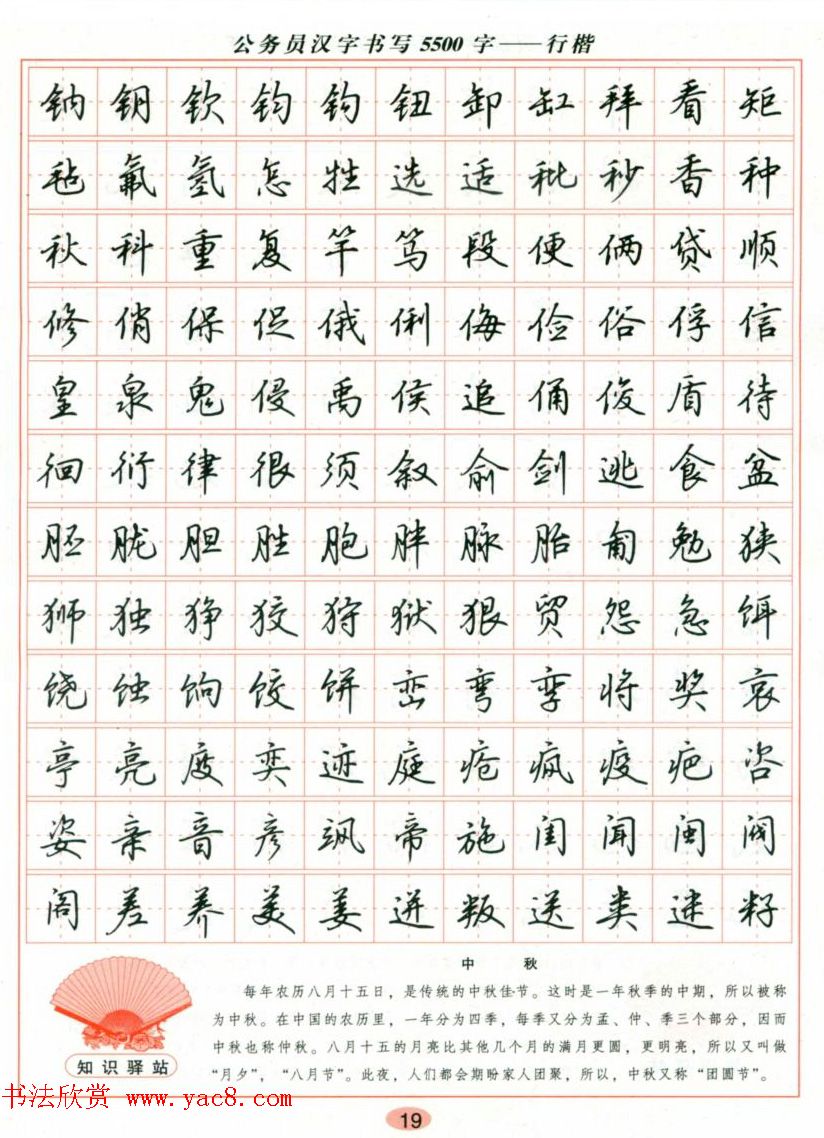 公务员汉字书写5500字——行楷
钠 钥 钦 钧 钩 钮 卸 缸 拜 看 矩
毡 氟 氢 怎 牲 选 适 秕 秒 香 种
秋 科 重 复 竿 笃 段 便 俩 贷 顺
修 俏 保 促 俄 俐 侮 俭 俗 俘 信
皇 泉 鬼 侵 禹 侯 追 俑 俊 盾 待
徊 衍 律 很 须 叙 俞 剑 逃 食 盆
胚 胧 胆 胜 胞 胖 脉 胎 匍 勉 狭
狮 独 狰 狡 狩 狱 狠 贸 怨 急 饵
饶 蚀 饷 饺 饼 峦 弯 孪 将 奖 哀
亭 亮 度 奕 迹 庭 疮 疯 疫 疤 咨
姿 亲 音 彦 飒 帝 施 闺 闻 闽 阀
阁 差 养 美 姜 迸 叛 送 类 迷 籽
中 秋
每年农历八月十五日，是传统的中秋佳节。这时是一年秋季的中期，所以被称
为中秋。在中国的农历里，一年分为四季，每季又分为孟、仲、季三个部分，因而
中秋也称仲秋。八月十五的月亮比其他几个月的满月更圆，更明亮，所以又叫做
“月夕”，“八月节”。此夜，人们都会期盼家人团聚，所以，中秋又称“团圆节”。
知识驿站
书法欣赏 www.yac8.com
19